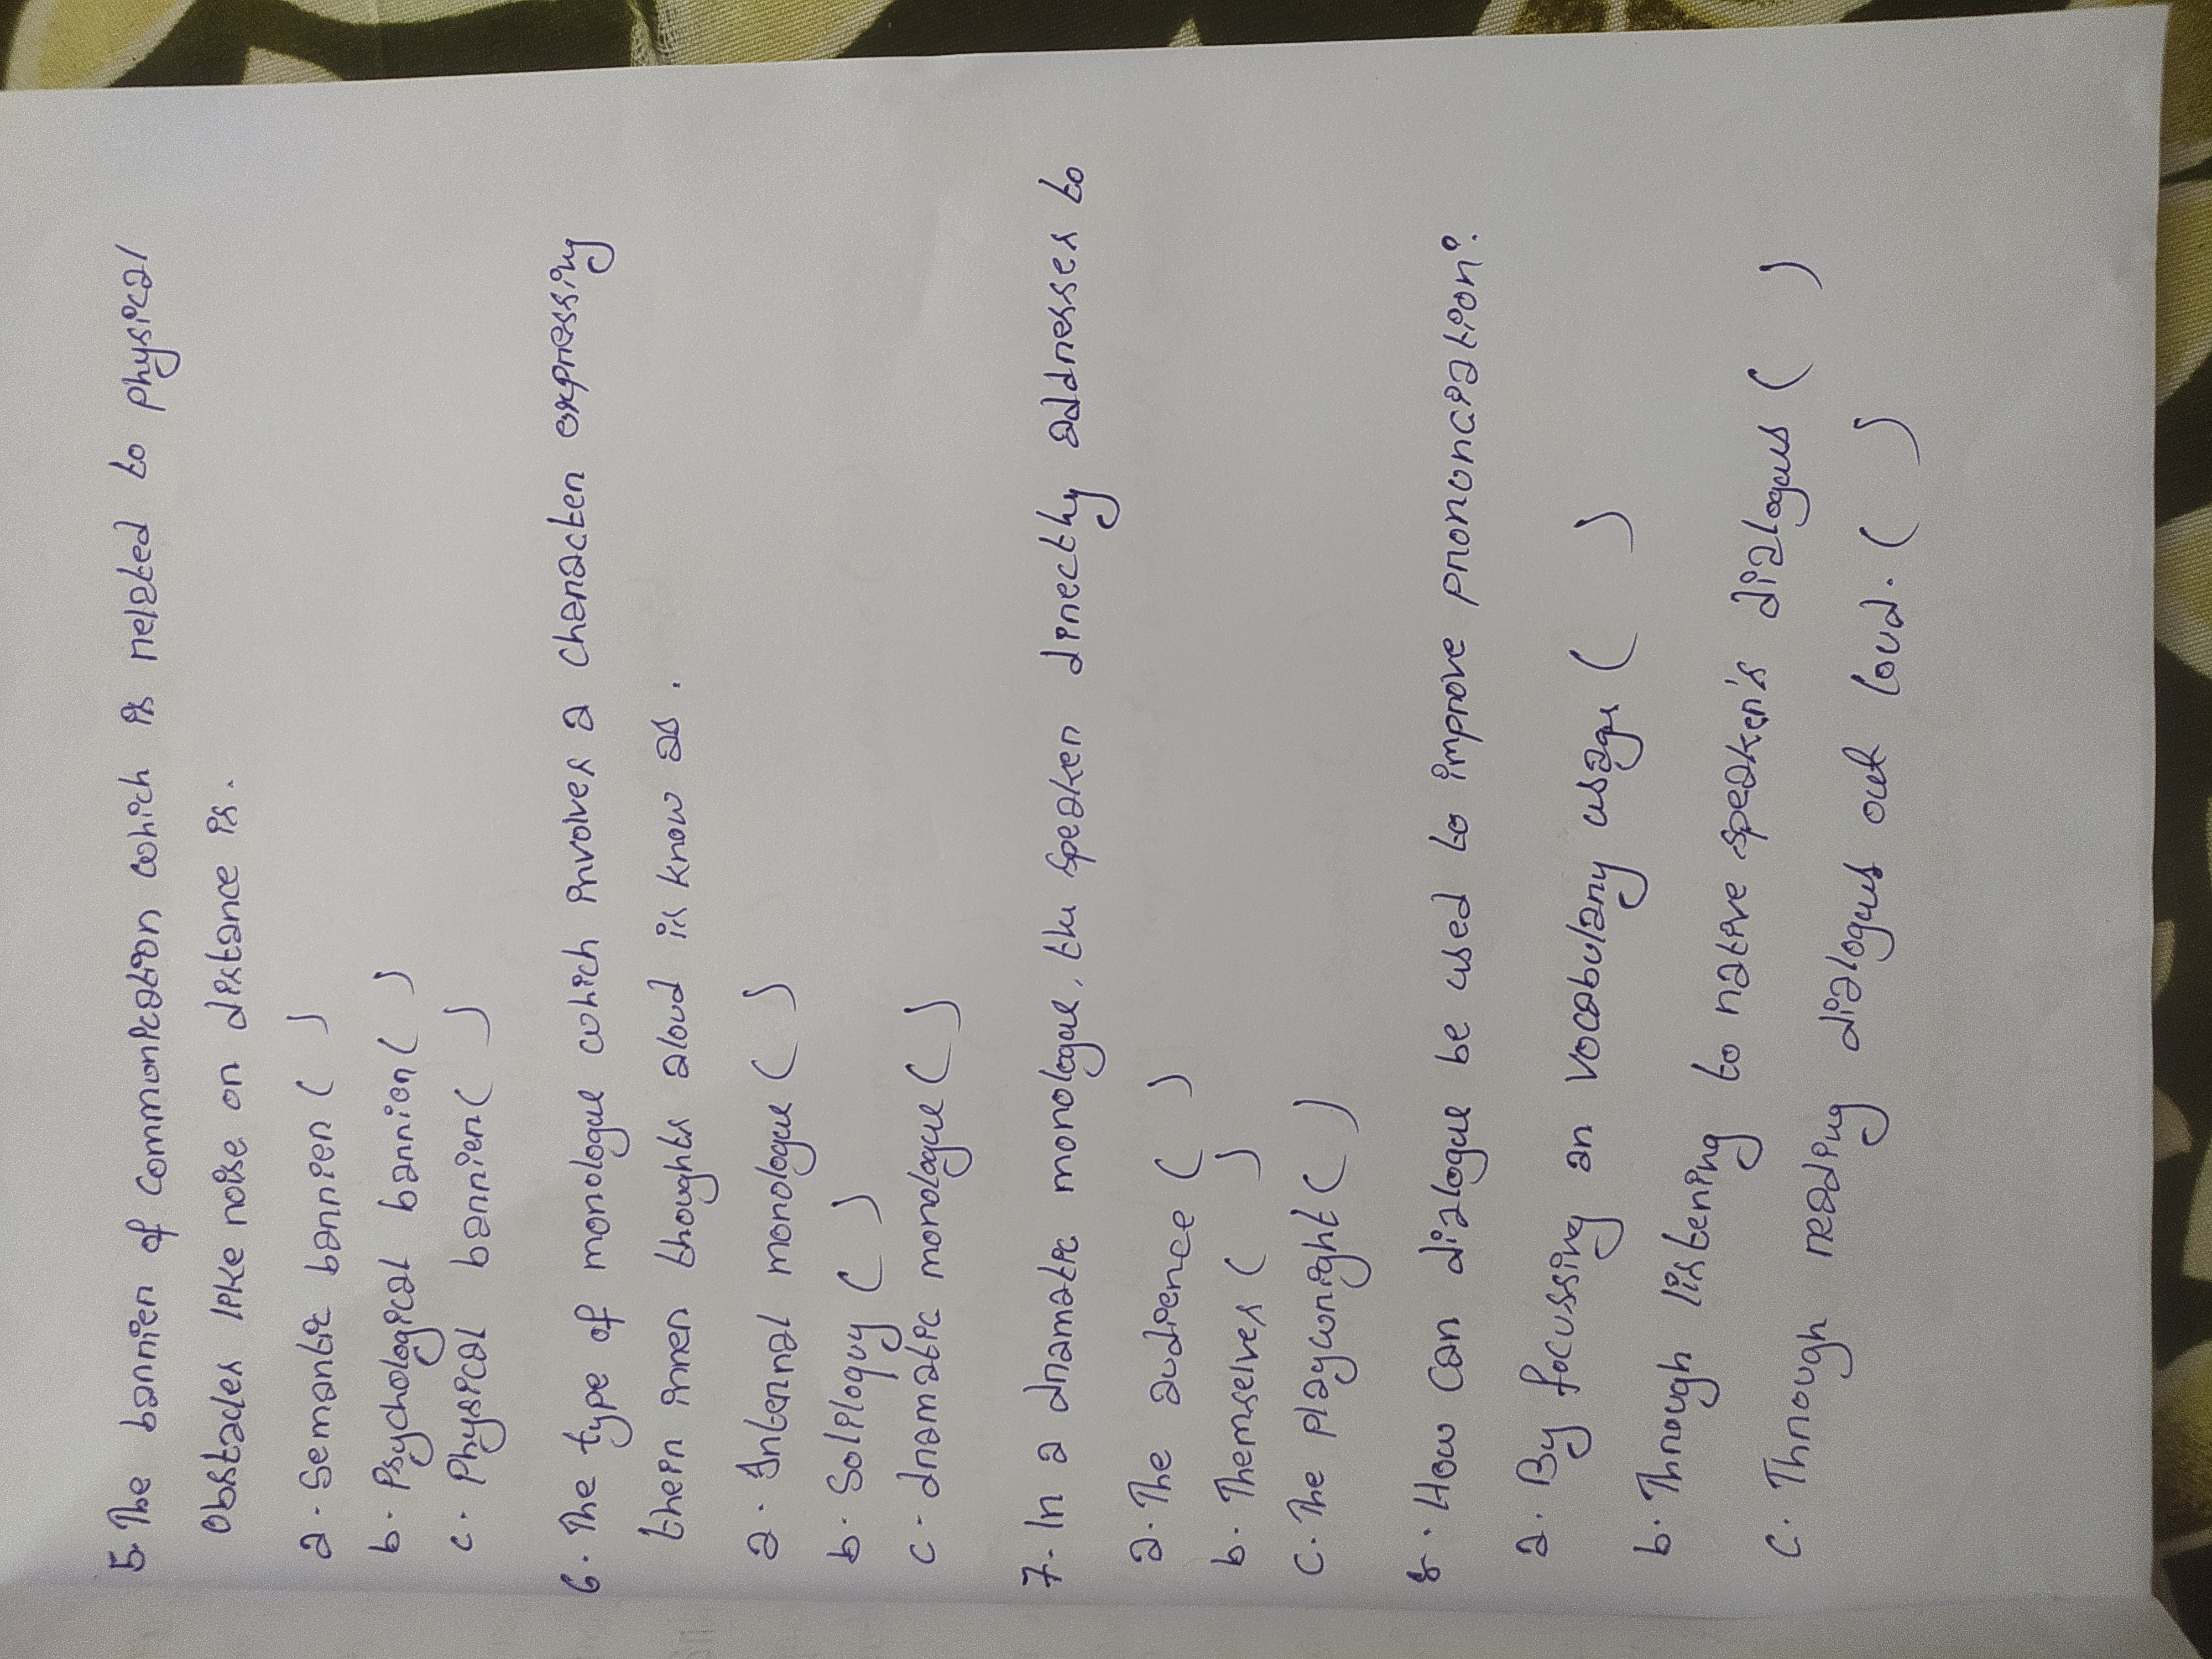 5. The barrier of communication which is related to physical
Obstacles like noise or distance is.
a. Semantic barrier ( )
b. Psychological barrier ( )
c. Physical barrier ( )
6. The type of monologue which involves a character expressing
their inner thoughts aloud is know as.
a. Internal monologue ( )
b. Soliloquy ( )
c- dramatic monologue ( )
7. In a dramatic monologue, the speaker directly addresses to
a. The audience ( )
b. Themselves ( )
C. The playwright ( )
8. How can dialogue be used to improve pronunciation?
a. By focussing an vocabulary usage ( )
b. Through listening to native speaker's dialogues ( )
C. Through reading dialogues out loud. ( )